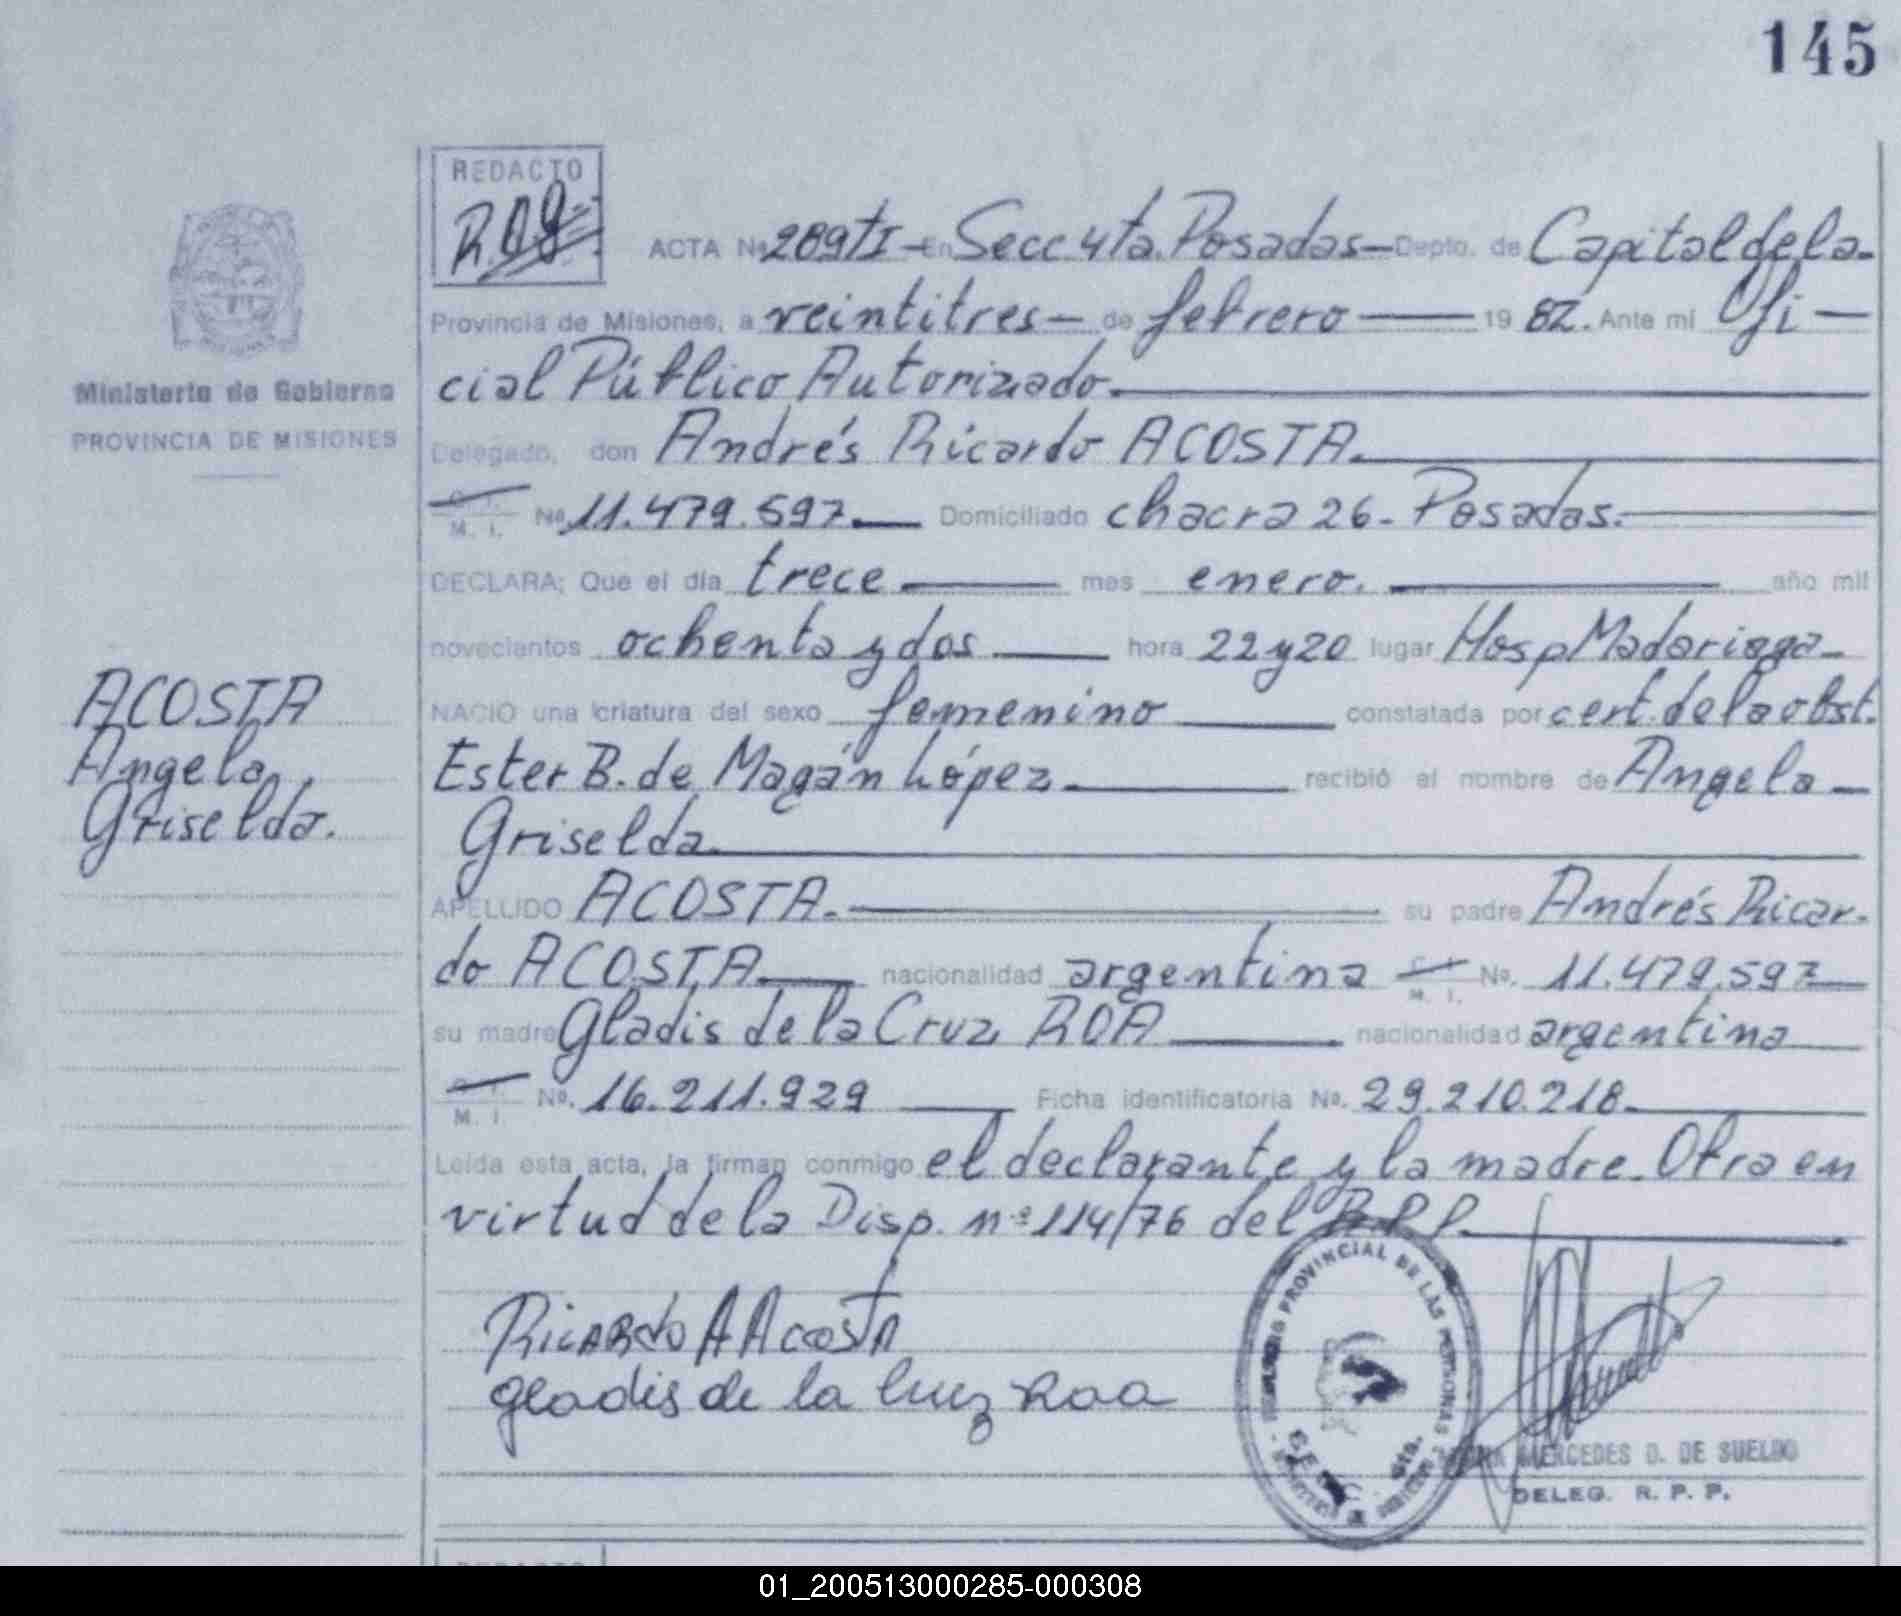 145
REDACTO
ACTA Nº 289/I - En Secc 4ta. Posadas - Depto. de Capital de la
Provincia de Misiones, a veintitres - de febrero 19 82. Ante mi Ofi-
cial Público Autorizado.
Delegado, don Andrés Ricardo ACOSTA.
M. I. Nº 11.479.597 Domiciliado chacra 26 - Posadas.
DECLARA; Que el día trece mes enero. año mil
novecientos ochenta y dos hora 22 y 20 lugar Hosp Madariaga
NACIO una criatura del sexo femenino constatada por cert. de la obst.
Ester B. de Magán López recibió el nombre de Angela
Griselda.
APELLIDO ACOSTA. su padre Andrés Ricar-
do ACOSTA nacionalidad argentina M. I. No. 11.479.597
su madre Gladis de la Cruz ROA nacionalidad argentina
M. I. Nº. 16.211.929 Ficha identificatoria No. 29.210.218.
Leída esta acta, la firman conmigo el declarante y la madre. Obra en
virtud de la Disp. nº 114/76 del R.P.P.
Ricardo A Acosta
gladis de la Cruz Roa
PROVINCIAL DE LAS PERSONAS
SECC. 4ta.
MERCEDES D. DE SUELDO
DELEG. R. P. P.
Ministerio de Gobierno
PROVINCIA DE MISIONES
ACOSTA
Angela
Griselda.
REDACTO
01_200513000285-000308